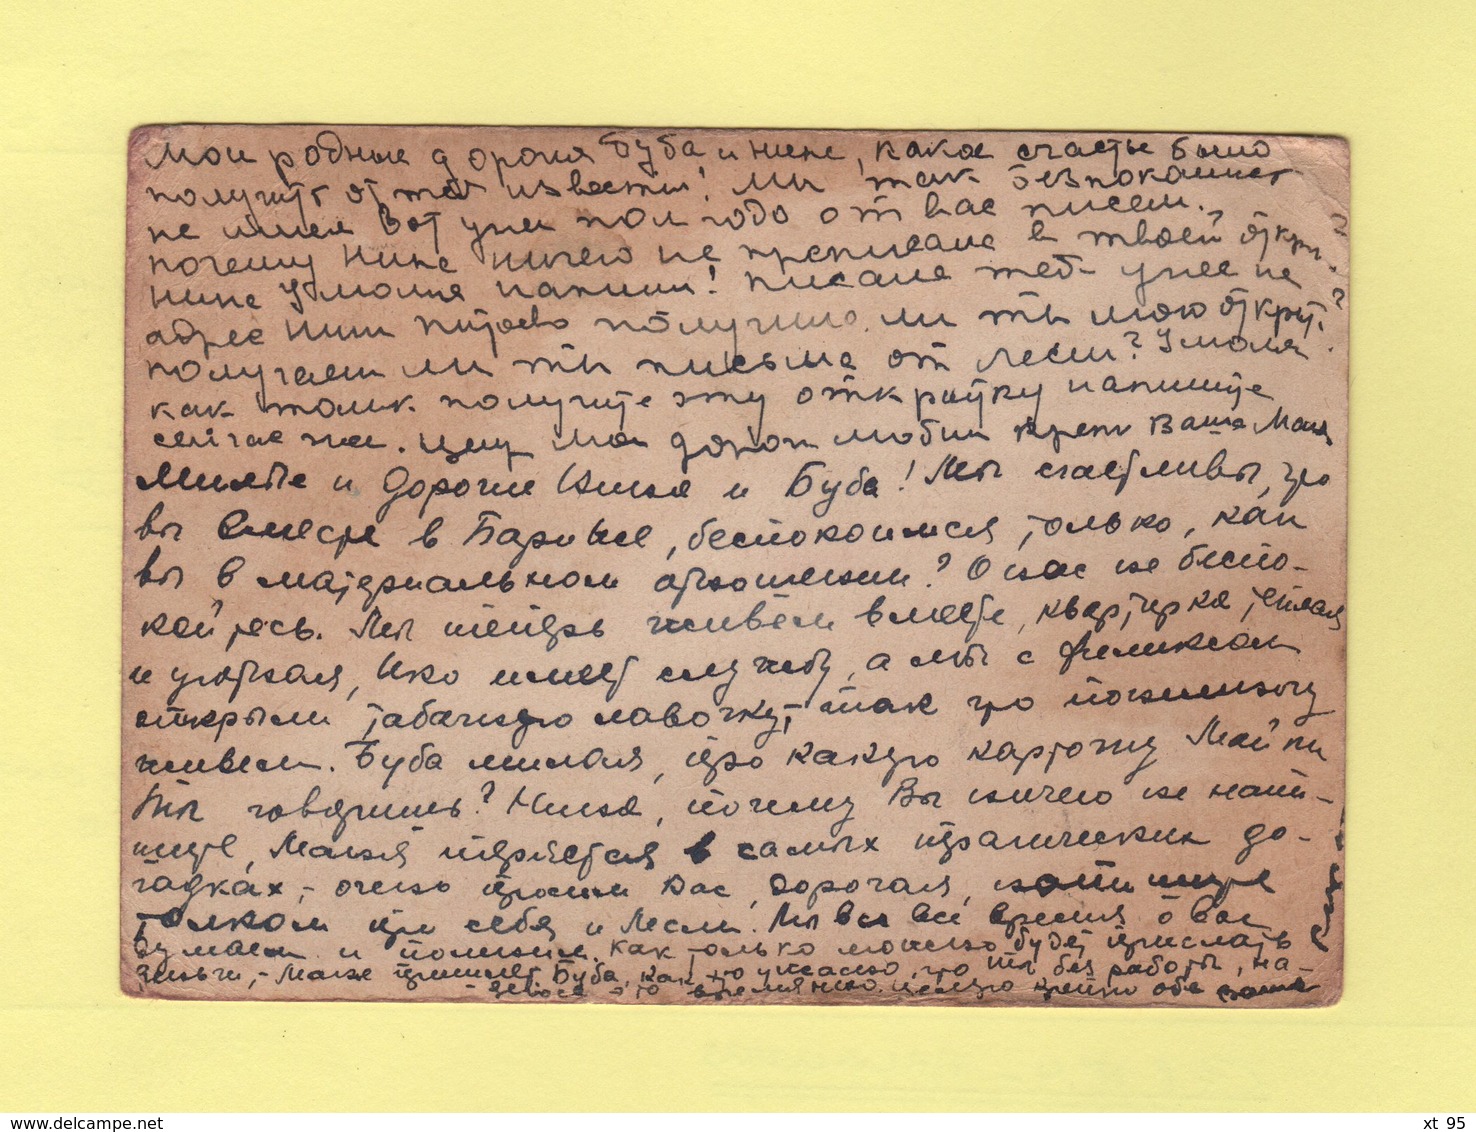 Мои родные дорогия Буба и Нине, какое счастье было
получить от теб известия! Мы так безпокоимся
не имея вот уже пол года от вас писем.
почему Нине ничего не преписала в твоей откры.?
Нине умоляю напиши! писала теб- уже не
адрес получило ли ты мою открыт.?
получаеш ли ты письма от Леси? Умоля
как толик получите эту открытку напишите
сейчас же. целу мои дорог любим креп Ваша Маня
Милые и дорогие Нина и Буба! Мы счастливы, что
вы вместе в Париже, беспокоимся, только, как
вы в материальном отношении? О нас не беспо-
койтесь. Мы теперь живём вместе, квартирка теплая
и уютная, Ико имеет службу, а мы с Феликсом
открыли табачную лавочку, так что понемногу
живем. Буба милая, про какую карточку Майки
ты говоришь? Нина, почему Вы ничего не напи-
шете, Маня теряется в самых трагических до-
гадках, - очень просим Вас, дорогая, напишите
толком про себя и Лесли. Мы все время о вас
думаем и помним. Как только можно будет прислать
деньги, - Маня пришлет. Буба, как это ужасно, что ты без работы, на-
деюсь это временно. целую крепко обе ваша